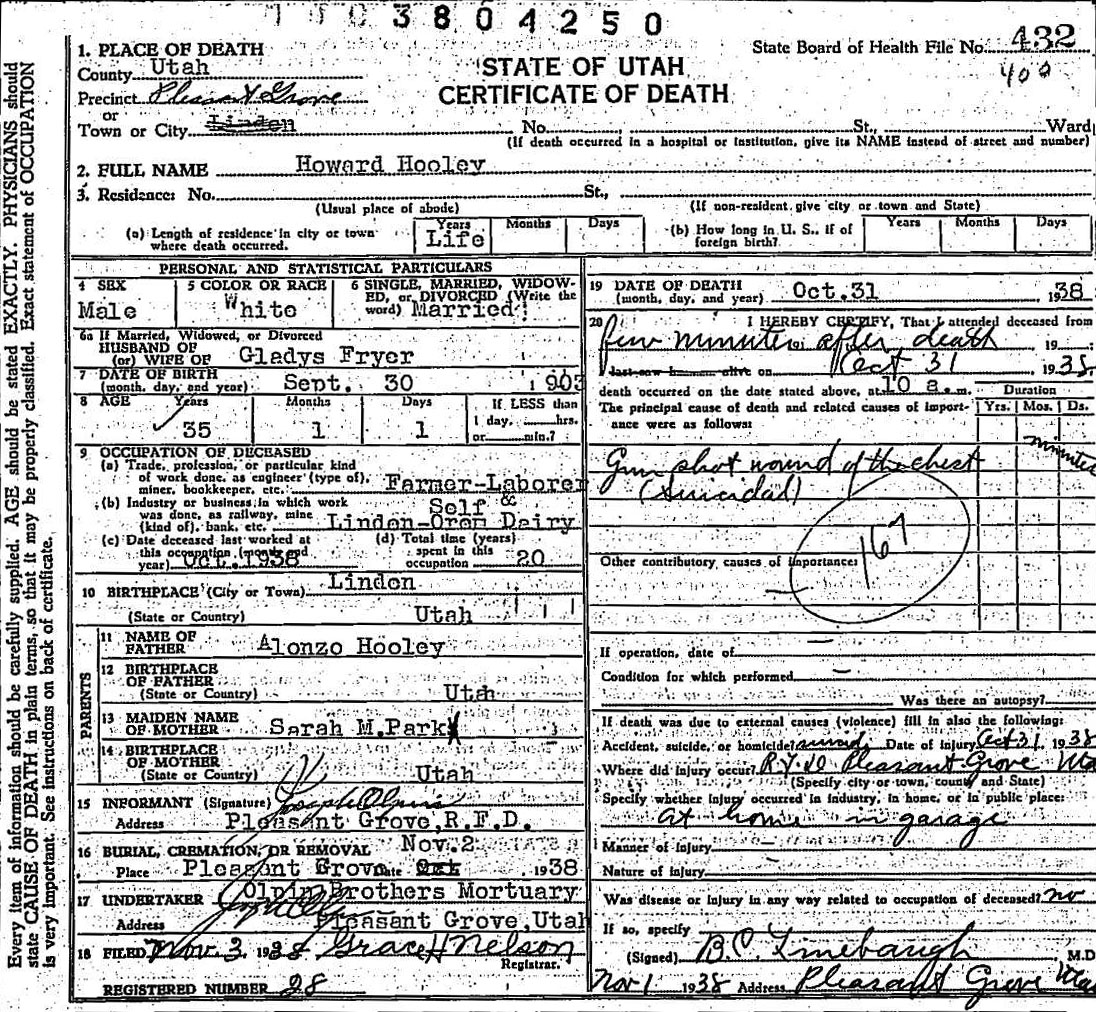 3804250
State Board of Health File No. 432
400
STATE OF UTAH
CERTIFICATE OF DEATH
1. PLACE OF DEATH
County Utah
Precinct Pleasant Grove
or
Town or City Lindon No. St., Ward
(If death occurred in a hospital or institution, give its NAME instead of street and number)
2. FULL NAME Howard Hooley
3. Residence: No. St.,
(Usual place of abode) (If non-resident give city or town and State)
(a) Length of residence in city or town where death occurred. Years Life Months Days
(b) How long in U. S., if of foreign birth? Years Months Days
PERSONAL AND STATISTICAL PARTICULARS
4 SEX Male
5 COLOR OR RACE White
6 SINGLE, MARRIED, WIDOWED, or DIVORCED (Write the word) Married
6a If Married, Widowed, or Divorced
HUSBAND OF
(or) WIFE OF Gladys Fryer
7 DATE OF BIRTH
(month, day, and year) Sept. 30 1903
8 AGE Years 35 Months 1 Days 1
If LESS than
1 day, hrs.
or min.?
9 OCCUPATION OF DECEASED
(a) Trade, profession, or particular kind
of work done, as engineer (type of),
miner, bookkeeper, etc. Farmer-Laborer
(b) Industry or business in which work
was done, as railway, mine
(kind of), bank, etc. Self & Lindon-Orem Dairy
(c) Date deceased last worked at
this occupation (month and
year) Oct. 1938
(d) Total time (years)
spent in this
occupation 20
10 BIRTHPLACE (City or Town) Lindon
(State or Country) Utah
PARENTS
11 NAME OF
FATHER Alonzo Hooley
12 BIRTHPLACE
OF FATHER
(State or Country) Utah
13 MAIDEN NAME
OF MOTHER Sarah M. Park
14 BIRTHPLACE
OF MOTHER
(State or Country) Utah
15 INFORMANT (Signature) Joseph Olpin
Address Pleasant Grove, R.F.D.
16 BURIAL, CREMATION, OR REMOVAL Nov. 2
Place Pleasant Grove Date Oct 1938
17 UNDERTAKER Olpin Brothers Mortuary
Address Pleasant Grove, Utah
18 FILED Nov. 3 1938 Grace H Nelson
Registrar.
REGISTERED NUMBER 28
19 DATE OF DEATH
(month, day, and year) Oct. 31 1938
20 I HEREBY CERTIFY, That I attended deceased from
few minutes after death 19
last saw h alive on Oct 31 1938
death occurred on the date stated above, at 10 a.m.
The principal cause of death and related causes of importance were as follows:
Duration
Yrs. Mos. Ds.
Gun shot wound of the chest minutes
(Suicidal)
167
Other contributory causes of importance:
If operation, date of
Condition for which performed
Was there an autopsy?
If death was due to external causes (violence) fill in also the following:
Accident, suicide, or homicide? suicide Date of injury Oct 31 1938
Where did injury occur? Pleasant Grove
(Specify city or town, county and State)
Specify whether injury occurred in industry, in home, or in public place:
at home in garage
Manner of injury
Nature of injury
Was disease or injury in any way related to occupation of deceased? no
If so, specify
(Signed) B.C. Linebaugh M.D
Nov 1 1938 Address Pleasant Grove
Every item of information should be carefully supplied. AGE should be stated EXACTLY. PHYSICIANS should
state CAUSE OF DEATH in plain terms, so that it may be properly classified. Exact statement of OCCUPATION
is very important. See instructions on back of certificate.